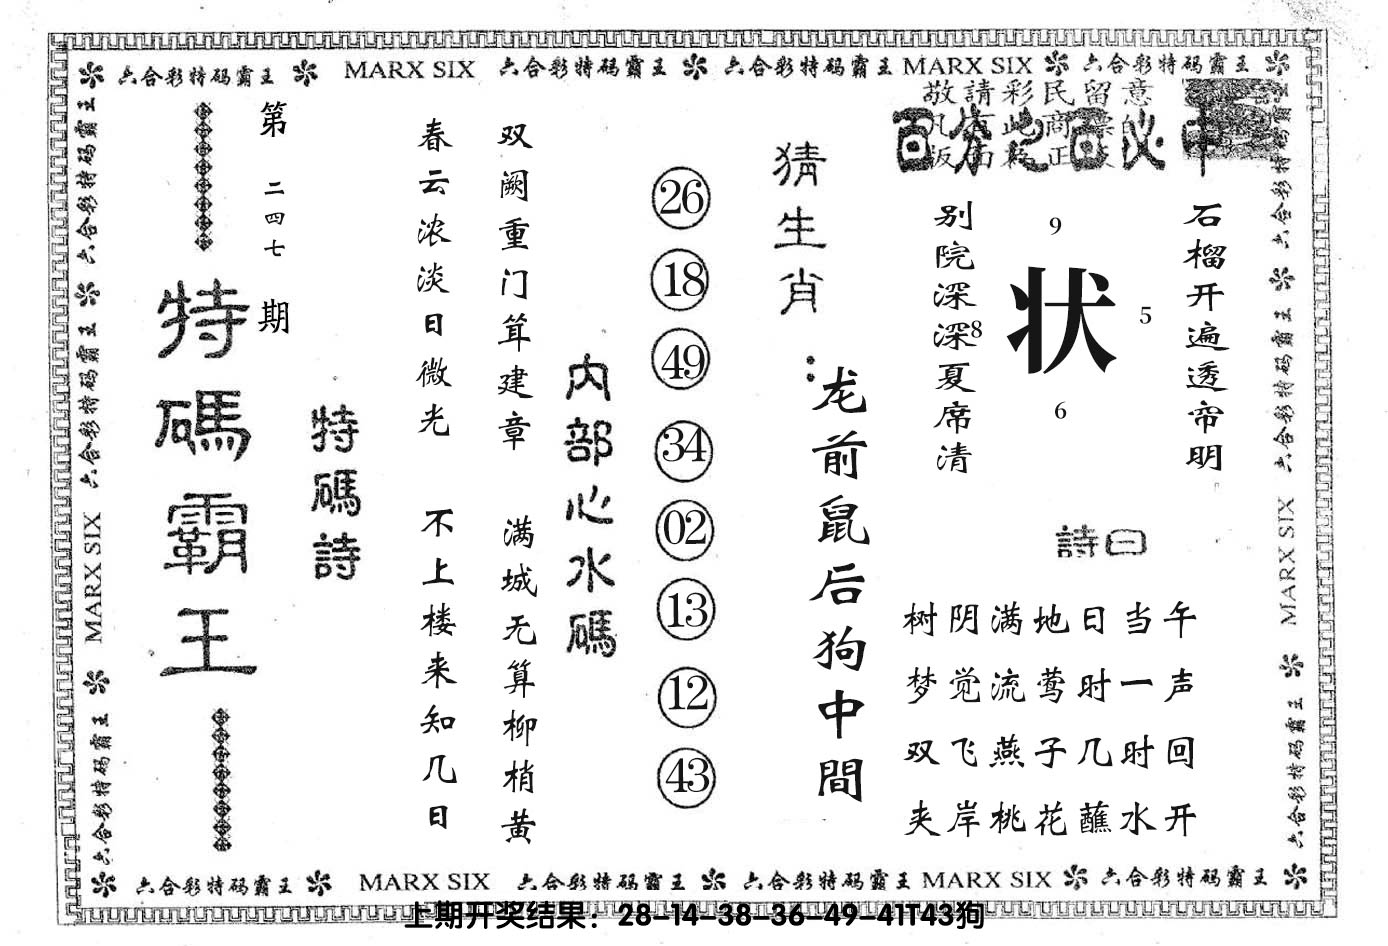 六合彩特码霸王 MARX SIX 六合彩特码霸王 六合彩特码霸王 MARX SIX 六合彩特码霸王
敬請彩民留意
百分之百必中
石榴开遍透帘明
别院深深夏席清
9
8
状
5
6
詩曰
树阴满地日当午
梦觉流莺时一声
双飞燕子几时回
夹岸桃花蘸水开
猜生肖:
龙前鼠后狗中間
26
18
49
34
02
13
12
43
内部心水碼
双阙重门耸建章
满城无算柳梢黄
春云浓淡日微光
不上楼来知几日
特碼詩
第二四七期
特碼霸王
六合彩特码霸王 六合彩特码霸王 MARX SIX 六合彩特码霸王
六合彩特码霸王 六合彩特码霸王 MARX SIX 六合彩特码霸王
六合彩特码霸王 MARX SIX 六合彩特码霸王 六合彩特码霸王 MARX SIX 六合彩特码霸王
上期开奖结果：28-14-38-36-49-41T43狗